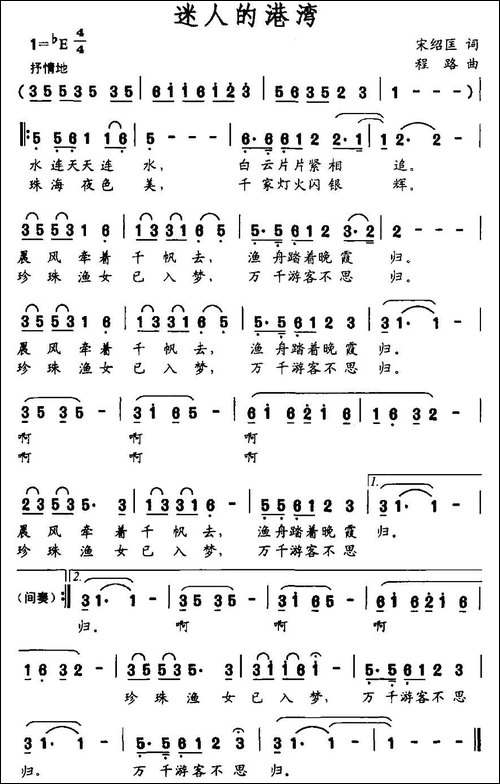 迷人的港湾
1=♭E 4/4
宋绍匡 词
抒情地
程 路 曲
(35535 35 | 6116123 | 5635 2 3 | 1 - - -)
5 561 16 | 5 - - - | 6·66122·1 | 12 - -
水连天天连 水, 白云片片紧相 追。
珠海夜色 美, 千家灯火闪银 辉。
3553516 | 1331665 | 5·56123·2 | 2 - - -
晨风牵着千帆去, 渔舟踏着晚霞 归。
珍珠渔女已入梦, 万千游客不思 归。
3553516 | 1331665 | 5·5612 3 | 31· 1 -
晨风牵着千帆去, 渔舟踏着晚霞 归。
珍珠渔女已入梦, 万千游客不思 归。
35 35 - | 31 65 - | 61 62162 | 1632 -
啊 啊 啊
啊 啊 啊
23535· 3 | 133165 - | 5·56123 | 1. 31· 1 -
晨风牵着千帆去, 渔舟踏着晚霞 归。
珍珠渔女已入梦, 万千游客不思
(间奏) 2. 31· 1 - | 35 35 35 | 31 65 - | 61 6216
归。 啊 啊 啊
1632 - | 23535· 3 | 133161 - | 5·56123
珍珠渔女已入梦, 万千游客不思
31· 1 - | 5·56123 | 31· 1 - | 1 - - -
归。 万千游客不思 归。